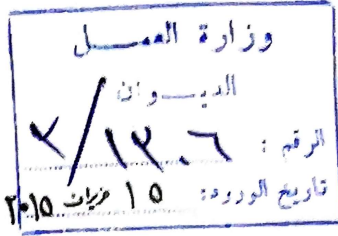 وزارة العمل
الديوان
الرقم : ٣/١٣٠٦
تاريخ الورود: ١٥ حزيران ٢٠١٥